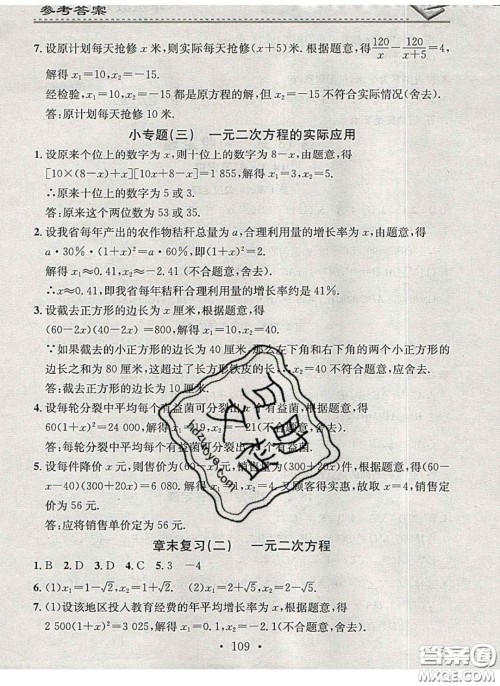 参考答案
7. 设原计划每天抢修 x 米,则实际每天抢修(x+5)米. 根据题意,得120/x－120/(x+5)=4,
解得 x₁=10,x₂=－15.
经检验,x₁=10,x₂=－15 都是原方程的解,但 x=－15 不符合实际情况(舍去).
答:原计划每天抢修 10 米.
小专题(三) 一元二次方程的实际应用
1. 设原来个位上的数字为 x,则十位上的数字为 8－x,由题意,得
[10×(8－x)+x][10x+8－x]=1 855,解得 x₁=3,x₂=5.
∴原来十位上的数字为 5 或 3.
答:原来这个两位数为 53 或 35.
2. 设我省每年产出的农作物秸秆总量为 a,合理利用量的增长率为 x,由题意,得
a·30%·(1+x)²=a·60%,即(1+x)²=2.
解得 x₁≈0.41,x₂≈－2.41(不合题意,舍去).
∴x≈0.41,即我省每年秸秆合理利用量的增长率约是 41%.
3. 设截去正方形的边长为 x 厘米,根据题意,得
(60－2x)(40－2x)=800,解得 x₁=10,x₂=40.
∵如果截去的小正方形的边长为 40 厘米,那么左下角和右下角的两个小正方形的
边长之和为 80 厘米,这超过了长方形铁皮的长,∴x₂=40 不合题意,应舍去.
答:截去正方形的边长为 10 厘米.
4. 设每轮分裂中平均每个有益菌可分裂出 x 个有益菌,根据题意,得
60(1+x)²=24 000,解得 x₁=19,x₂=－21(不合题意,舍去).
答:每轮分裂中平均每个有益菌可分裂出 个有益菌.
5. 设每件降价 x 元,则售价为(60－x)元,销售量为(300+20x)件,根据题意,得
(60－x－40)(300+20x)=6 080. 解得 x₁=1,x₂=4. 又顾客得实惠,故取 x=4,即定
价为 56 元.
答:应将销售单价定为 56 元.
章末复习(二) 一元二次方程
1. B 2. D 3. C 4. C 5. 3 －4
6. (1)x₁=1－√2,x₂=1+√2. (2)x₁=√5,x₂=√5.
7. (1)设该地区投入教育经费的年平均增长率为 x,根据题意,得
2 500(1+x)²=3 025,解得 (不合题意,舍去).
· 109 ·
自助
文档
hdzuoye.com
答案圈
MXQE.COM